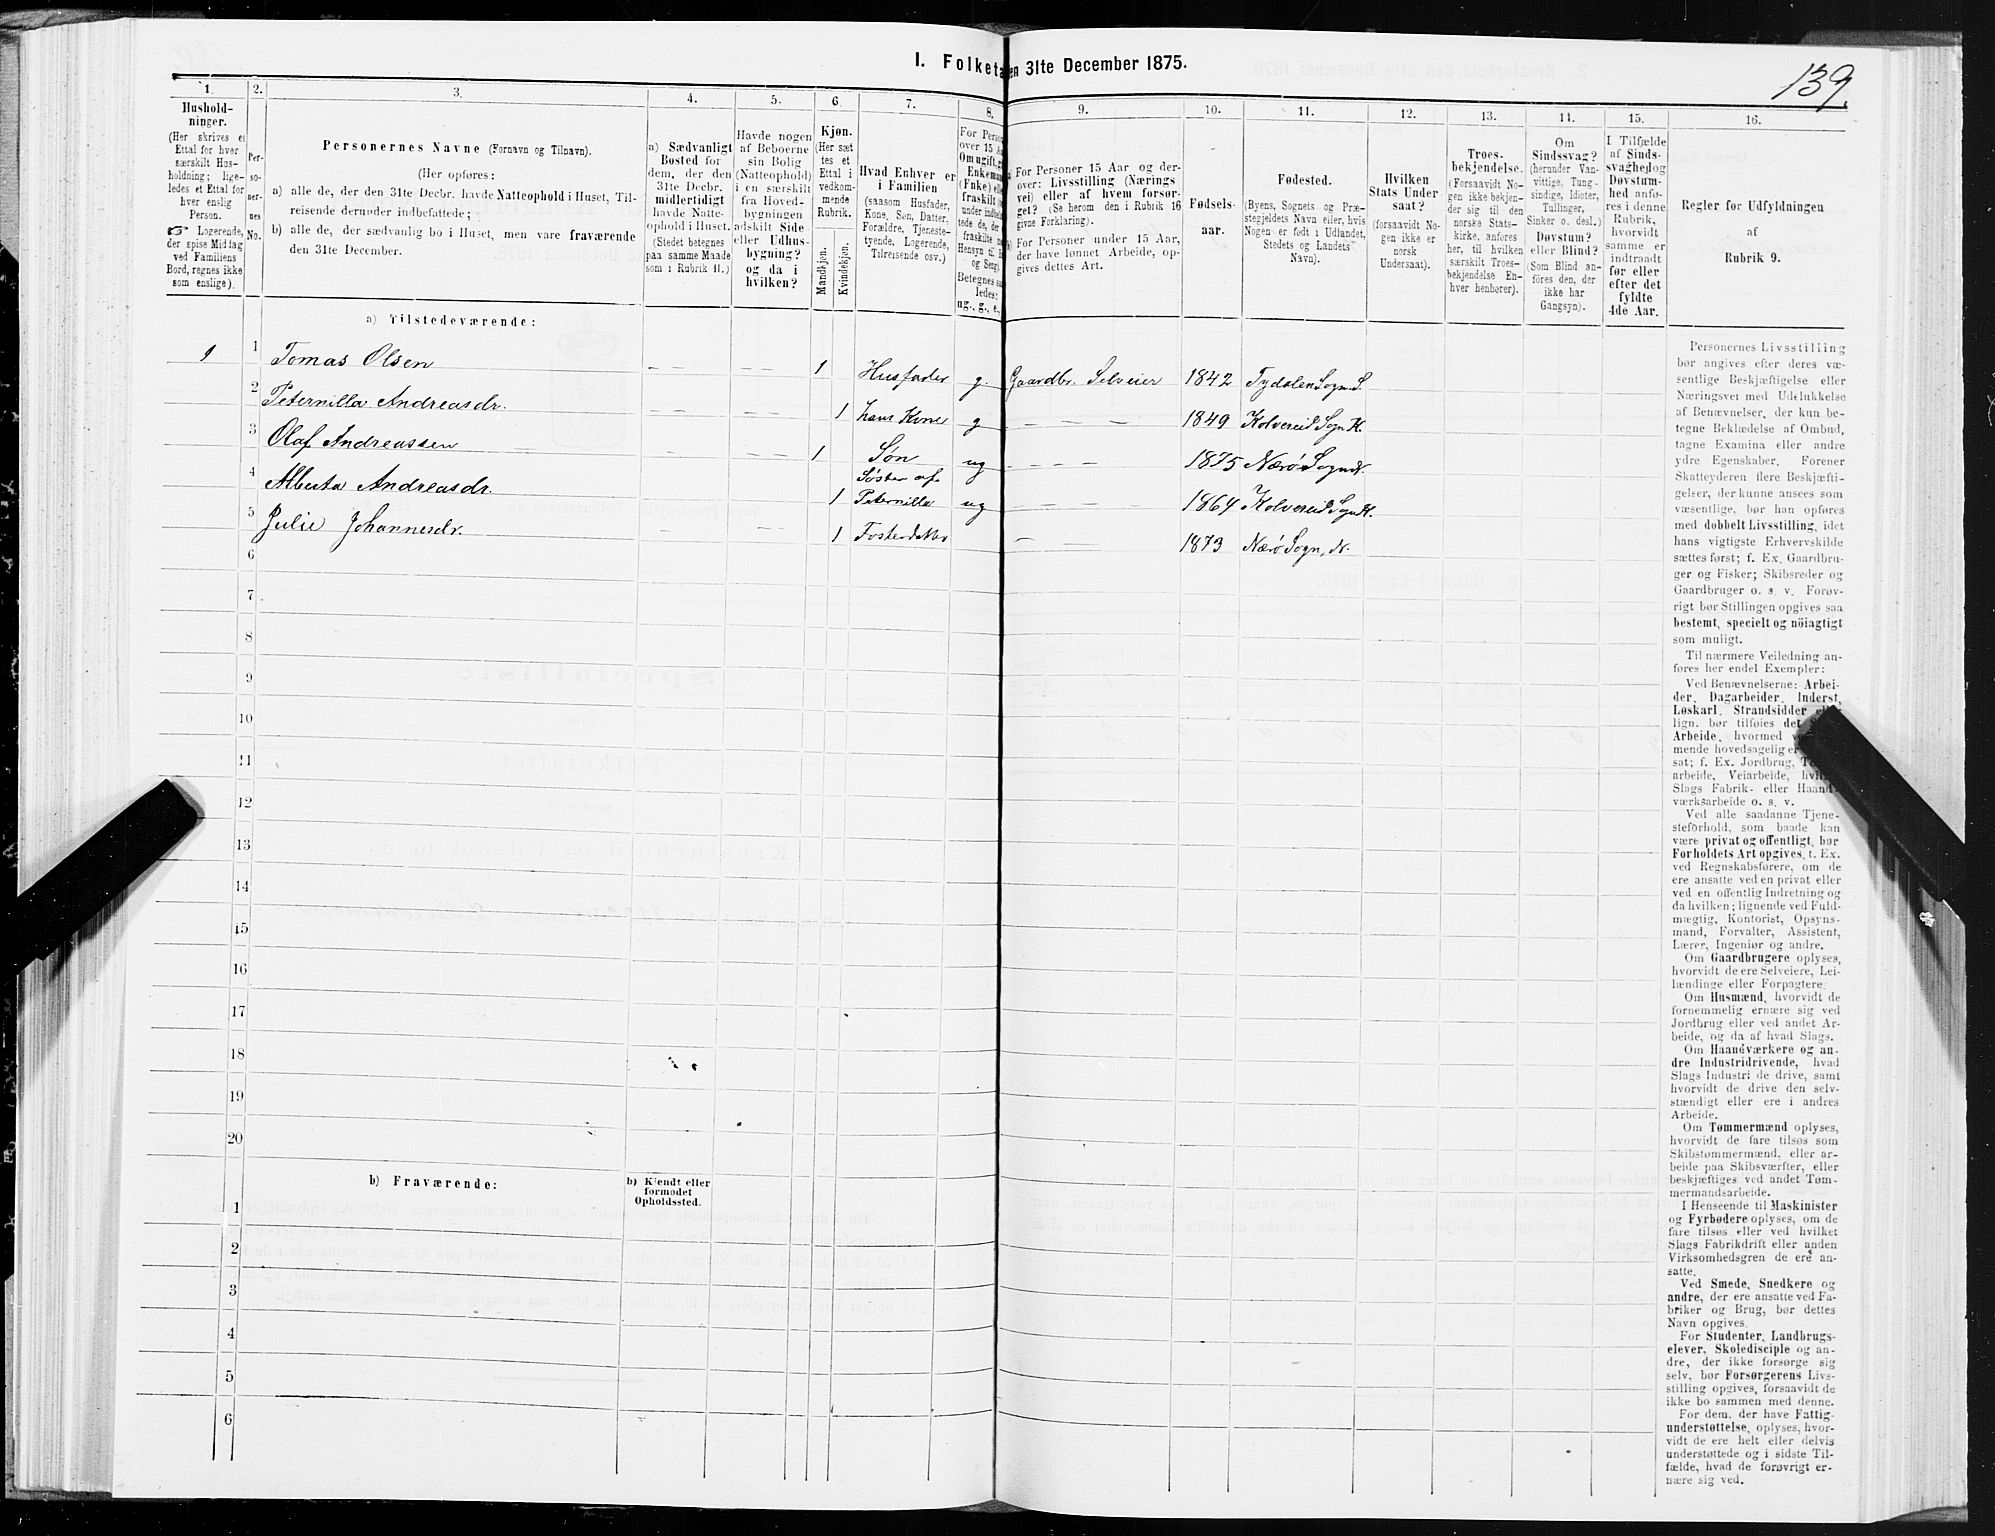 I. Folketa en 31te December 1875.
139.
1. 2. 3. 4. 5. 6. 7. 8. 9. 10. 11. 12. 13. 14. 15. 16.
Hushold-
ninger.
(Her skrives et
Ettal for hver
særskilt Hus-
holdning; lige-
ledes et Ettal for
hver enslig
Person.
☞ Logerende,
der spise Middag
ved Familiens
Bord, regnes ikke
som enslige).
Per-
so-
ner-
nes
No.
Personernes Navne (Fornavn og Tilnavn).
(Her opføres:
a) alle de, der den 31te Decbr. havde Natteophold i Huset, Til-
reisende derunder indbefattede;
b) alle de, der sædvanlig bo i Huset, men vare fraværende
den 31te December.
a) Sædvanligt
Bosted for
dem, der den
31te Decbr.
midlertidigt
havde Natte-
ophold i Huset.
(Stedet betegnes
paa samme Maade
som i Rubrik 11.)
Havde nogen
af Beboerne
sin Bolig
(Natteophold)
i en særskilt
fra Hoved-
bygningen
adskilt Side-
eller Udhus-
bygning?
og da i
hvilken?
Kjøn.
(Her sæt
tes et
Ettal i
vedkom-
mende
Rubrik.
Mandkjøn.
Kvindekjøn.
Hvad Enhver er
i Familien
(saasom Husfader,
Kone, Søn, Datter,
Forældre, Tjeneste-
tyende, Logerende,
Tilreisende osv.)
For Perso
over 15 Aa
Om ugift, g
Enkema
(Enke) ell
fraskilt (
under indbe
tede de, der
fraskilte
Hensyn til B
og Seng).
Betegnes saa
ledes;
ug., g., e.,
For Personer 15 Aar og der-
over: Livsstilling (Nærings
vei) eller af hvem forsør-
get? (Se herom den i Rubrik 16
givne Forklaring).
For Personer under 15 Aar,
der have lønnet Arbeide, op-
gives dettes Art.
Fødsels-
aar.
Fødested.
(Byens, Sognets og Præ-
stegjeldets Navn eller, hvis
Nogen er født i Udlandet,
Stedets og Landets
Navn).
Hvilken
Stats Under
saat?
(forsaavidt No-
gen ikke er
norsk
Undersaat).
Troes-
bekjendelse.
(Forsaavidt No-
gen ikke bekjen-
der sig til den
norske Stats-
kirke, anføres
her, til hvilken
særskilt Troes-
bekjendelse En-
hver henhører).
Om
Sindssvag?
(herunder Van-
vittige, Tung-
sindige, Idioter,
Tullinger,
Sinker o. desl.)
Døvstum?
eller Blind?
(Som Blind an-
føres den, der
ikke har
Gangsyn).
I Tilfælde
af Sinds-
svaghed og
Døvstum-
hed anfø-
res i denne
Rubrik,
hvorvidt
samme er
indtraadt
før eller
efter det
fyldte
4de Aar.
Regler for Udfyldningen
af
Rubrik 9.
a) Tilstedeværende:
1 1 Tomas Olsen — — — — 1 Husfader g. Gaardbr. Selveier 1842 Tydalen Sogn S.
2 Peternilla Andreasdr. — — — — 1 hans Kone g — — — 1849 Kolvereid Sogn N.
3 Olaf Andreassen — — — — 1 Søn ug — — — 1875 Nærø Sogn N.
4 Alberta Andreasdr. 1 Søster af Peternilla ug 1864 Kolvereid Sogn N.
5 Julie Johannesdr. — — — — 1 Fosterdatter — — 1873 Nærø Sogn, N.
6
7
8
9
10
11
12
13
14
15
16
17
18
19
20
b) Fraværende:
b) Kjendt eller
formodet
Opholdssted.
1
2
3
4
5
6
Personernes Livsstilling
bør angives efter deres væ-
sentlige Beskjæftigelse eller
Næringsvei med Udelukkelse
af Benævnelser, der kun be-
tegne Beklædelse af Ombud,
tagne Examina eller andre
ydre Egenskaber. Forener
Skatteyderen flere Beskjæfti-
gelser, der kunne ansees som
væsentlige, bør han opføres
med dobbelt Livsstilling, idet
hans vigtigste Erhvervskilde
sættes først; f. Ex. Gaardbru-
ger og Fisker; Skibsreder og
Gaardbruger o. s. v. Forøv-
rigt bør Stillingen opgives saa
bestemt, specielt og nöiagtigt
som muligt.
Til nærmere Veiledning an-
føres her endel Exempler:
Ved Benævnelserne: Arbei-
der, Dagarbeider, Inderst,
Løskarl, Strandsidder
lign. bør tilføies det
Arbeide, hvormed
mende hovedsagelig er
sat; f. Ex. Jordbrug,
arbeide, Veiarbeide,
Slags Fabrik- eller Haand-
værksarbeide o. s. v.
Ved alle saadanne Tjene-
steforhold, som baade kan
være privat og offentligt, bør
Forholdets Art opgives, t. Ex.
ved Regnskabsførere, om de
ere ansatte ved en privat eller
ved en offentlig Indretning og
da hvilken; lignende ved Fuld-
mægtig, Kontorist, Opsyns-
mand, Forvalter, Assistent,
Lærer, Ingeniør og andre.
Om Gaardbrugere oplyses,
hvorvidt de ere Selveiere, Lei-
lændinge eller Forpagtere.
Om Husmænd, hvorvidt de
fornemmelig ernære sig ved
Jordbrug eller ved andet Ar-
beide, og da af hvad Slags.
Om Haandværkere og an-
dre Industridrivende, hvad
Slags Industri de drive, samt
hvorvidt de drive den selv-
stændigt eller ere i andres
Arbeide.
Om Tømmermænd oplyses,
hvorvidt de fare tilsøs som
Skibstømmermænd, eller ar-
beide paa Skibsværfter, eller
beskjæftiges ved andet Tøm-
mermandsarbeide.
I Henseende til Maskinister
og Fyrbødere oplyses, om de
fare tilsøs eller ved hvilket
Slags Fabrikdrift eller anden
Virksomhedsgren de ere an-
satte.
Ved Smede, Snedkere og
andre, der ere ansatte ved Fa-
briker og Brug, bør dettes
Navn opgives.
For Studenter, Landbrugs-
elever, Skoledisciple og an-
dre, der ikke forsørge sig
selv, bør Forsørgerens Livs-
stilling opgives, forsaavidt de
ikke bo sammen med denne.
For dem, der have Fattig-
understøttelse, oplyses, hvor-
vidt de ere helt eller delvis
understøttede og i sidste Til-
fælde, hvad de forøvrigt er-
nære sig ved.